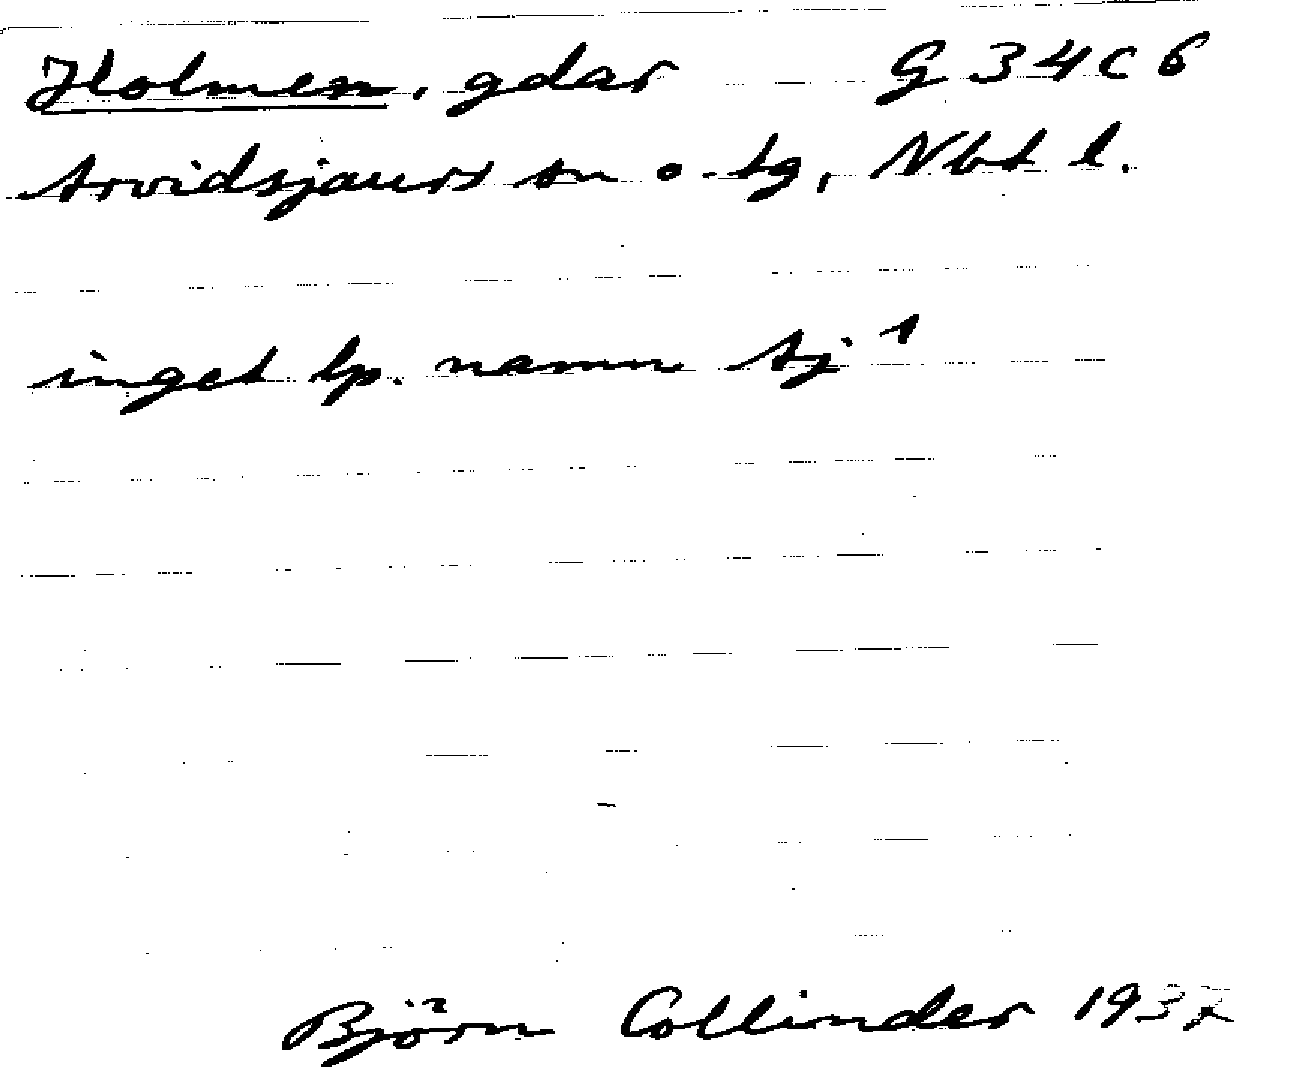 Holmen, gdar G 34 C 6
Arvidsjaurs sn o. tg, Nbt l.
inget lp. namn Aj 1
Björn Collinder 1937